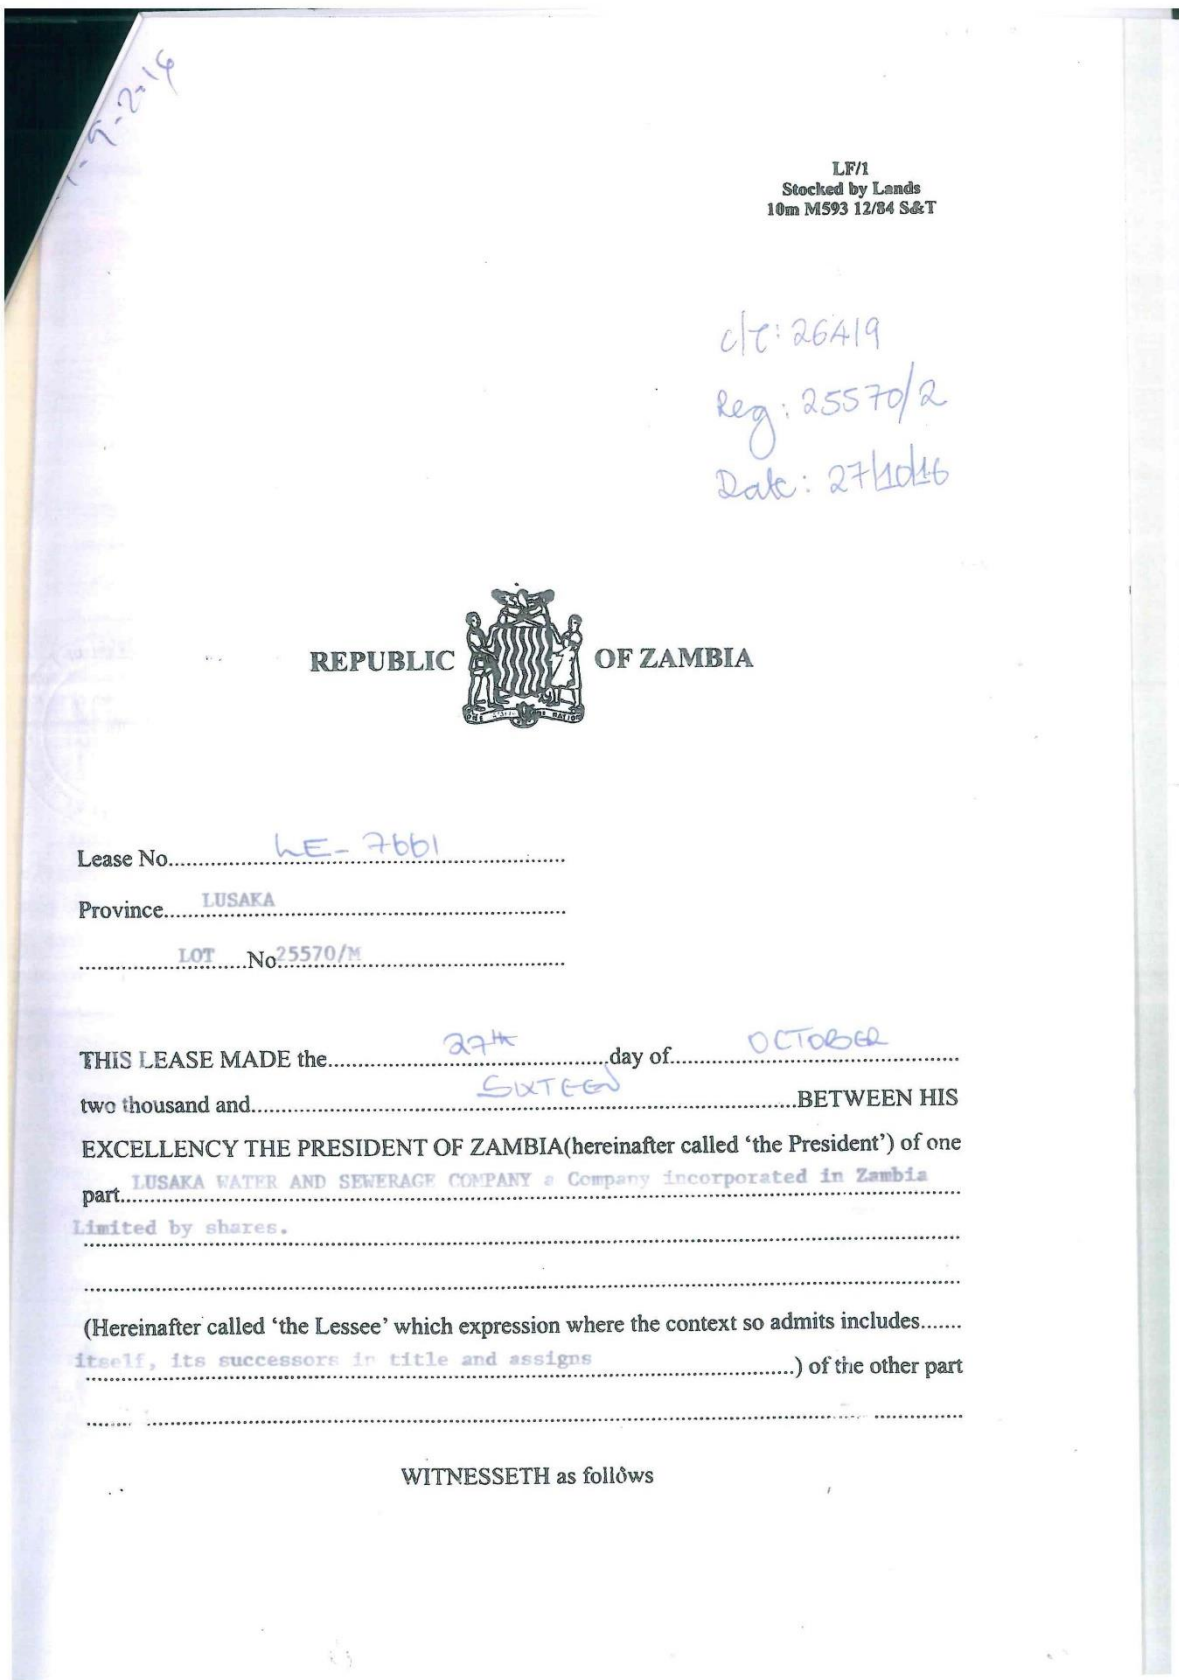 LF/1
Stocked by Lands
10m M593 12/84 S&T
c/t: 26419
Reg: 25570/2
Date: 27/10/16
REPUBLIC OF ZAMBIA
Lease No. LE-7661
Province LUSAKA
LOT No 25570/M
THIS LEASE MADE the 27th day of OCTOBER
two thousand and SIXTEEN BETWEEN HIS
EXCELLENCY THE PRESIDENT OF ZAMBIA(hereinafter called ‘the President’) of one
part LUSAKA WATER AND SEWERAGE COMPANY a Company incorporated in Zambia
Limited by shares.
(Hereinafter called ‘the Lessee’ which expression where the context so admits includes
itself, its successors in title and assigns ) of the other part
WITNESSETH as follows